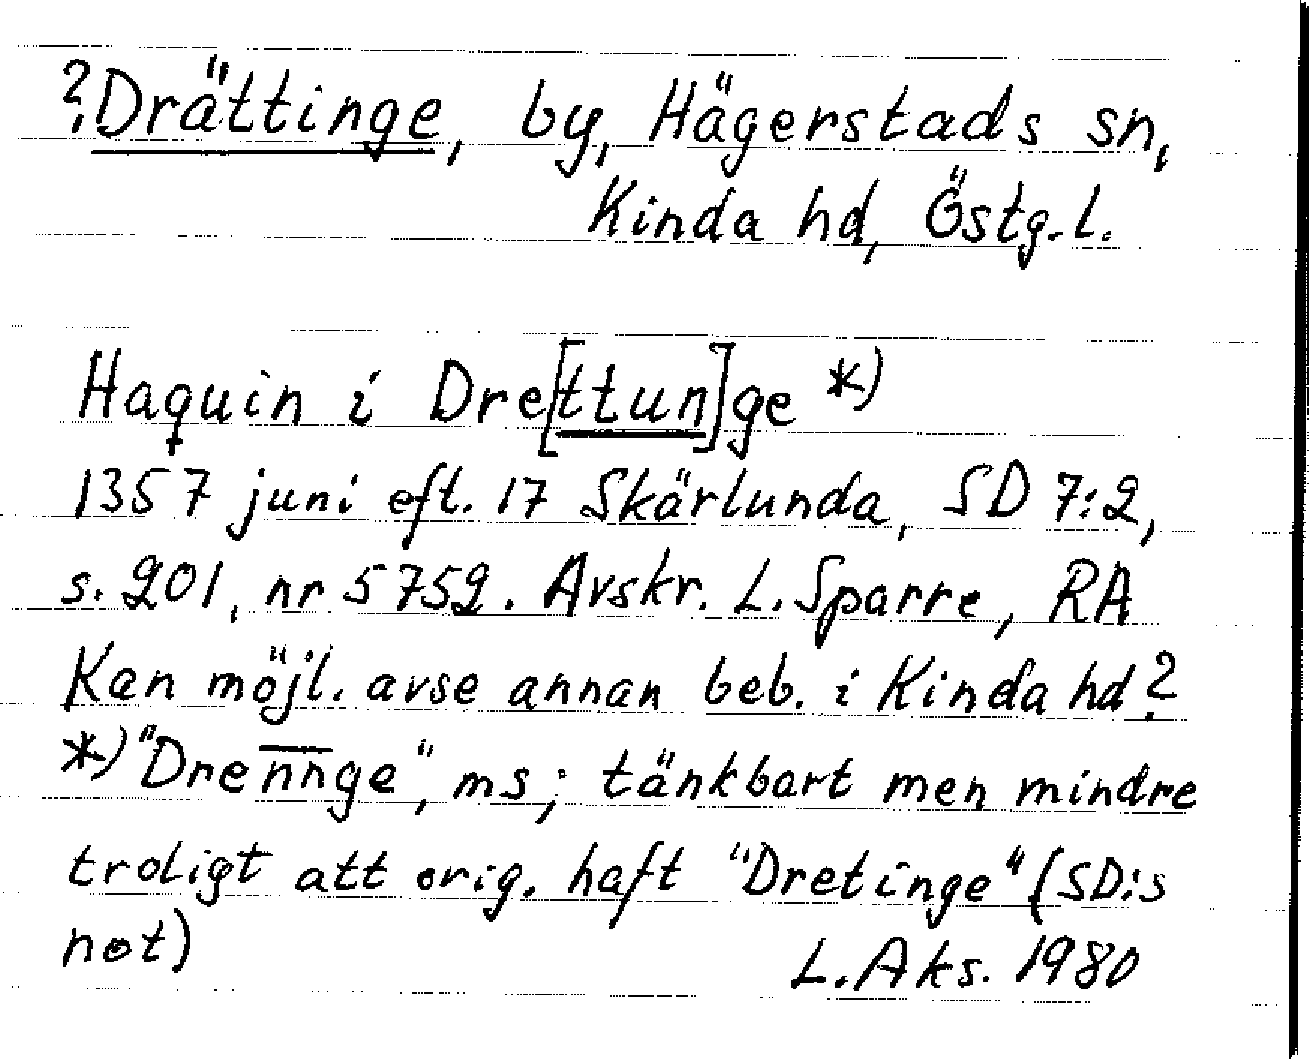 ? Drättinge, by, Hägerstads sn,
Kinda hd, Östg.l.
Haquin i Dre[ttun]ge *)
1357 juni eft. 17 Skärlunda, SD 7:2,
s. 201, nr 5752. Avskr. L. Sparre, RA
Kan möjl. avse annan beb. i Kinda hd?
*) "Dren̅n̅ge", ms; tänkbart men mindre
troligt att orig. haft "Dretinge" (SD:s
not)
L. Aks. 1980